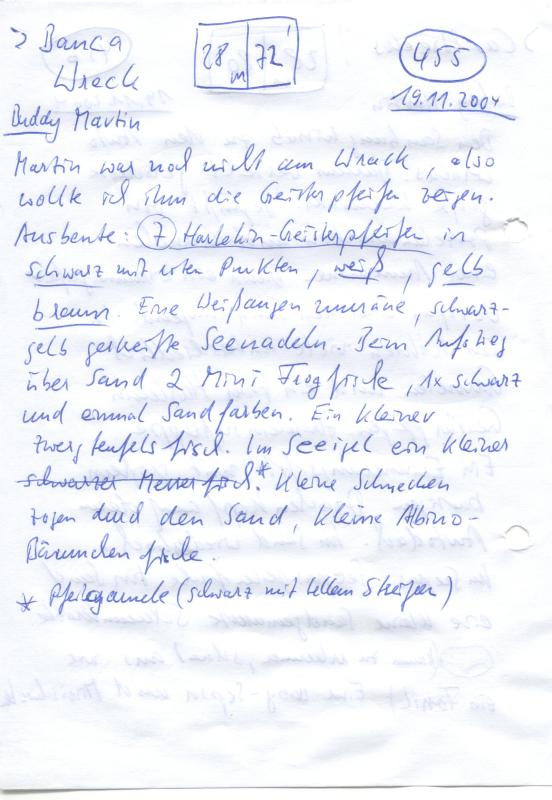 > Banca
Wrack
28 m 72'
455
19.11.2004
Buddy Martin
Martin war noch nicht am Wrack, also
wollte ich ihm die Geisterpfeifen zeigen.
Ausbeute: 7 Harlekin-Geisterpfeifen in
schwarz mit roten Punkten, weiß, gelb
braun. Eine Weißaugenmuräne, schwarz-
gelb gestreifte Seenadeln. Beim Aufstieg
über Sand 2 Mini Frogfische, 1x schwarz
und einmal Sandfarben. Ein kleiner
Zwergteufelsfisch. Im Seeigel ein kleiner
schwarzer Messerfisch.* Kleine Schnecken
zogen durch den Sand, kleine Albino-
Bäumchenfische.
* Pfeilgarnele (schwarz mit hellem Streifen)